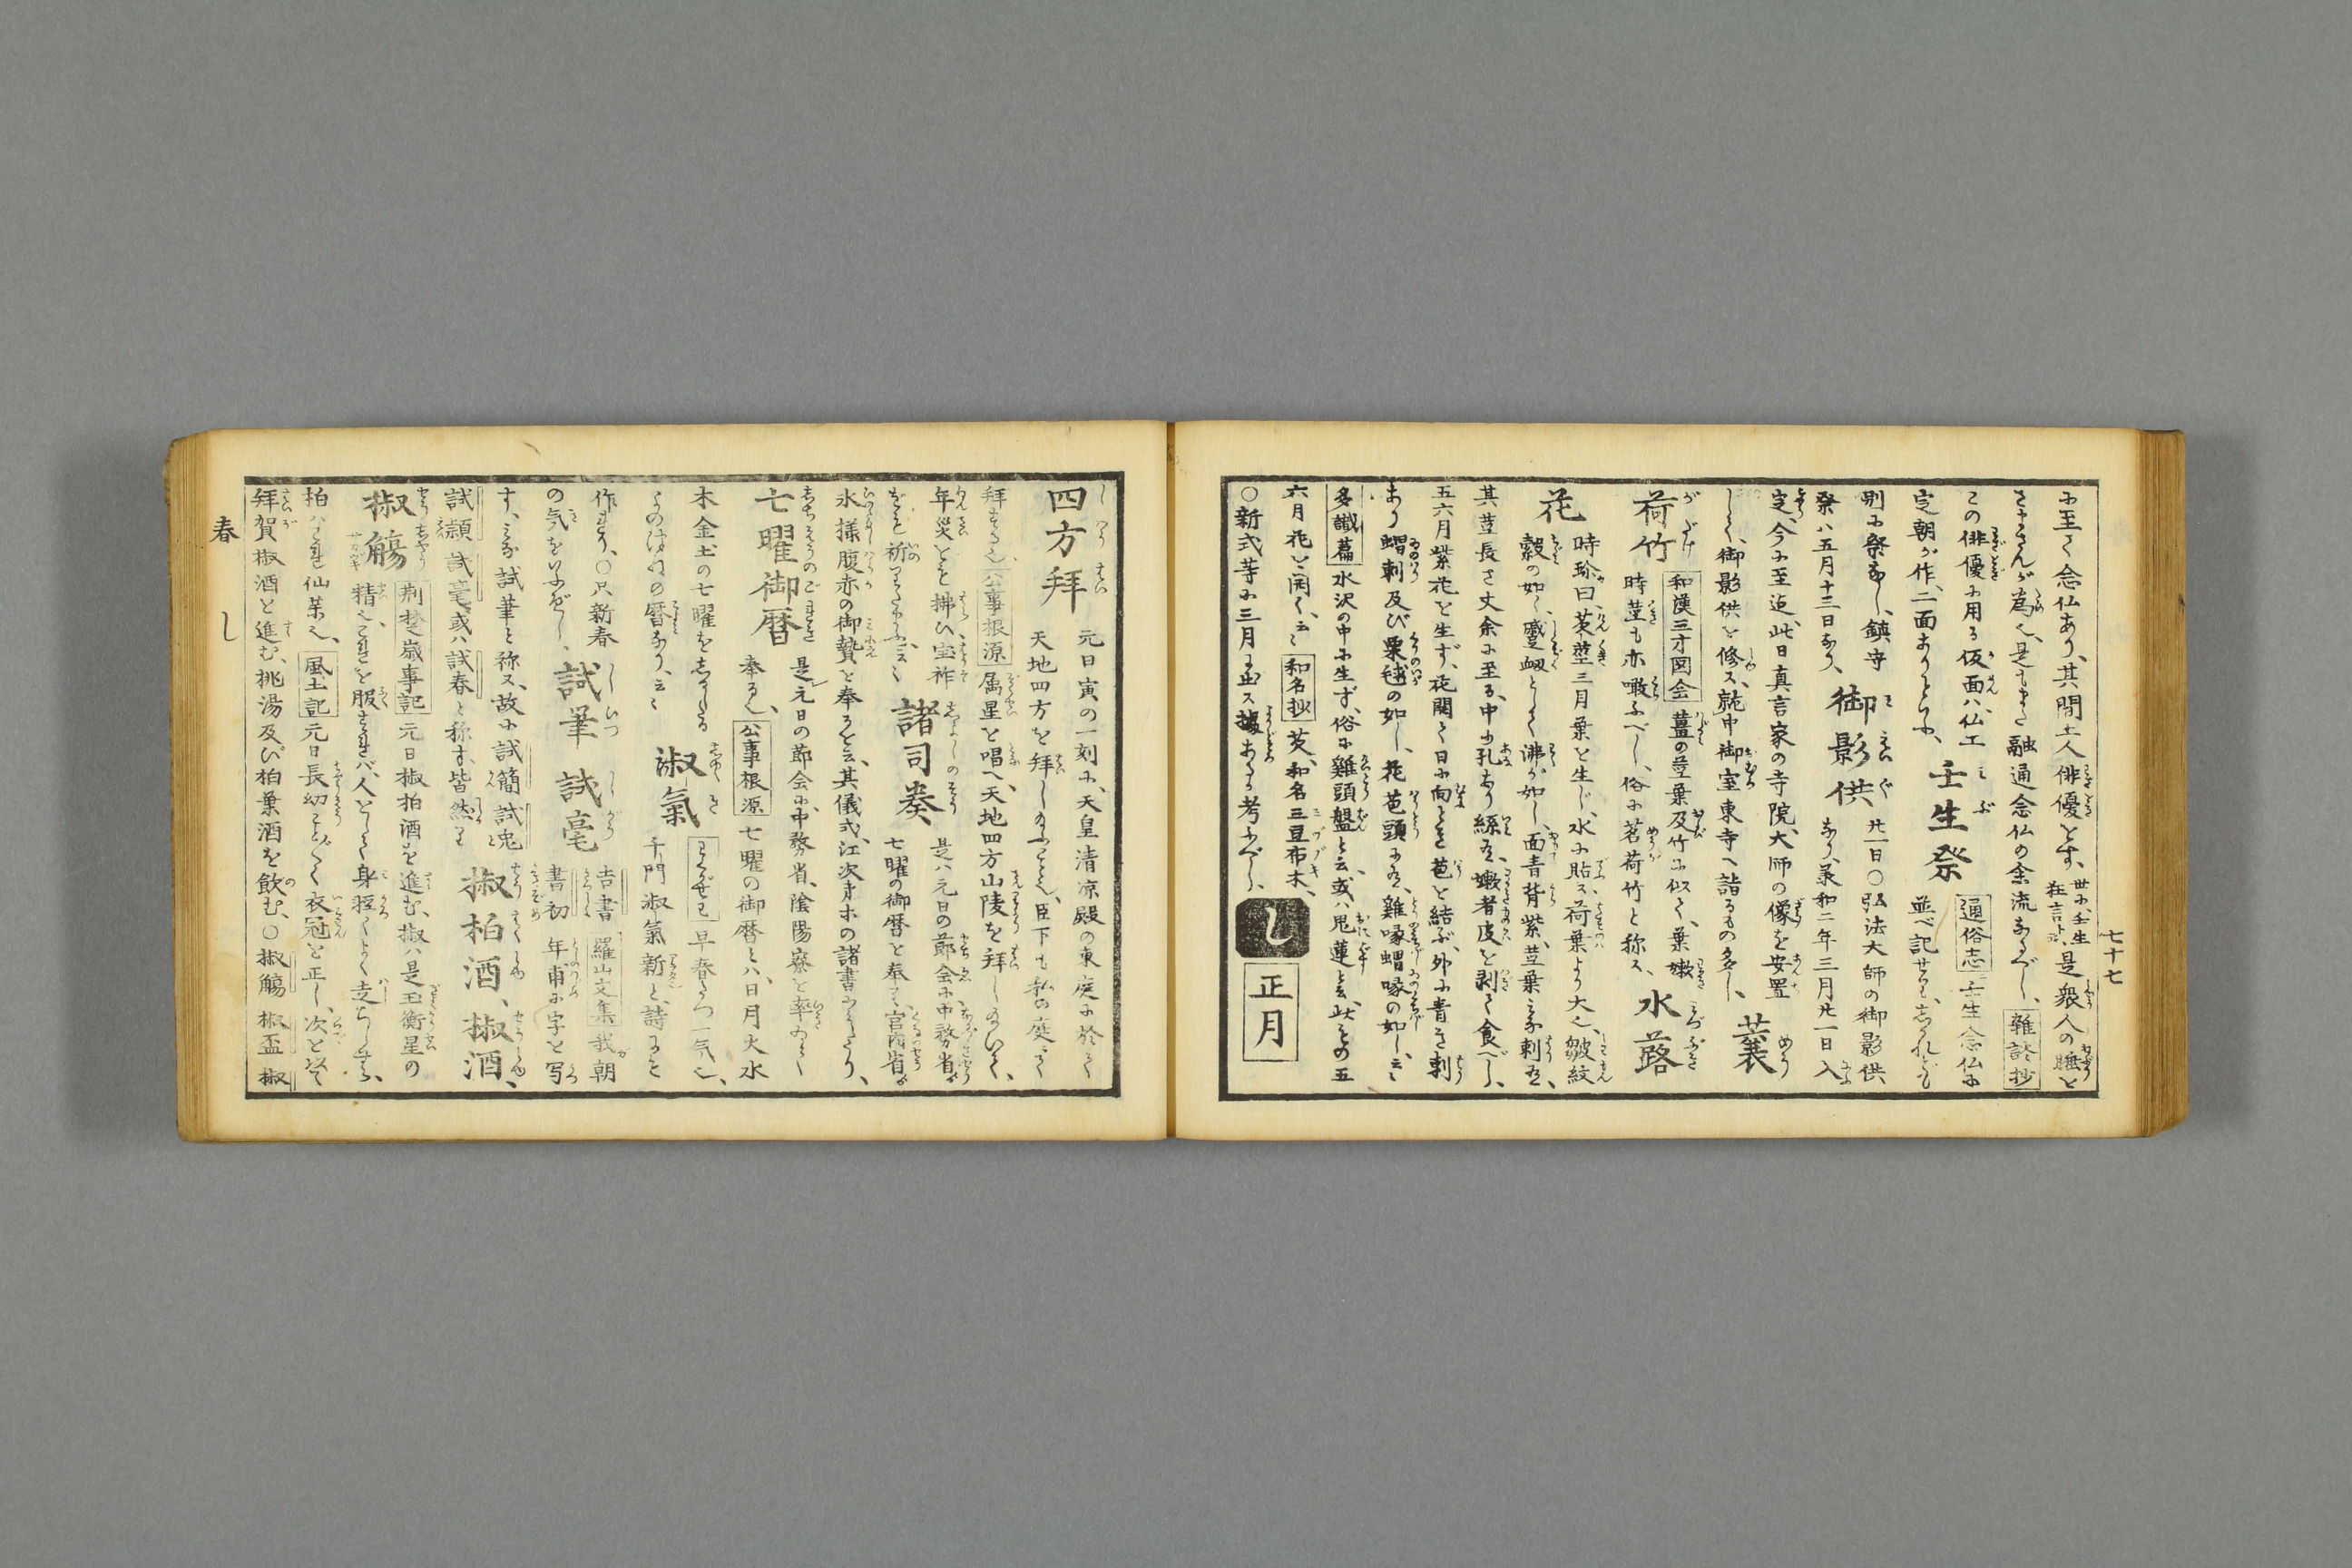 七十七
に至て念仏あり、其間土人俳優とす、世に壬生狂言と云、是衆人の睡を
さまさんが為也、是もまた融通念仏の余流なるべし、雑談抄
この俳優に用る仮面ハ、仏工
定朝が作、二面ありといふ、
壬生祭 通俗志 壬生念仏に並べ記せり、しかれども
別に祭なし、鎮守
祭ハ五月十三日なり、
御影供 廿一日〇弘法大師の御影供なり、承和二年三月廿一日入
定、今に至迄、此日真言家の寺院、大師の像を安置
して、御影供を修ス、就中御室東寺へ詣るもの多し、
蘘荷竹 和漢三才図会 薑の茎葉及竹に似て、葉嫩
時茎も亦噉ふべし、俗に茗荷竹と称ス、
水蕗花
時珍曰、芡茎三月葉を生じ、水に貼ス、荷葉より大也、皺紋
縠の如く、蹙衂として沸が如し、面青背紫、茎葉みな刺有、
其茎長さ丈余に至る、中に孔あり絲有、嫩者皮を剥て食べし、
五六月紫花を生ず、花開て日に向ときは苞を結ぶ、外に青き刺
あり、蝟刺及び栗毬の如し、花苞頭に有、雞喙蝟喙の如し、云々
多識篇 水沢の中に生ず、俗に雞頭盤と云、或ハ鬼蓮と云、此もの五
六月花を開く、云々 和名抄 芡、和名三豆布木、
〇新式等に三月に出ス、據あるか考ふべし、
し 正月
四方拝 元日寅の一刻に、天皇清凉殿の東庭に於て
天地四方を拝し給ふこと也、臣下も私の庭にて
拝する也、公事根源 属星を唱へ、天地四方山陵を拝し給ひて、
年災をを拂ひ、宝祚
をを祈り給ふ、云々
諸司奏 是ハ元日の節会に、中務省が
七曜の御暦を奉る、宮内省が
氷様腹赤の御贄を奉るを云、其儀式、江次才ホの諸書にくはし、
七曜御暦 是元日の節会に、中務省、陰陽寮を率ゐて
奉る也、公事根源 七曜の御暦とハ、日月火水
木金土の七曜をしるしたる
ものにての暦なり、云々
淑氣 早春たつ一気也、
千門淑氣新と、詩にも
作れり、〇只新春
の気をいふべし、
試筆 試毫 吉書 書初 羅山文集 我朝
年甫に字を写
す、みな試筆と称ス、故に試簡試兎
試頴 試毫或ハ試春と称す、皆然り
椒柏酒、椒酒、
椒觴 荊楚歳事記 元日椒柏酒を進む、椒ハ是玉衡星の
精也、これを服すれバ、人として身軽くよく走らしむ、
柏ハこれ仙薬也、風土記 元日長幼ことごとく衣冠を正し、次を以て
拜賀椒酒を進む、桃湯及び柏葉酒を飲む、〇椒觴 椒盃 椒
春
し